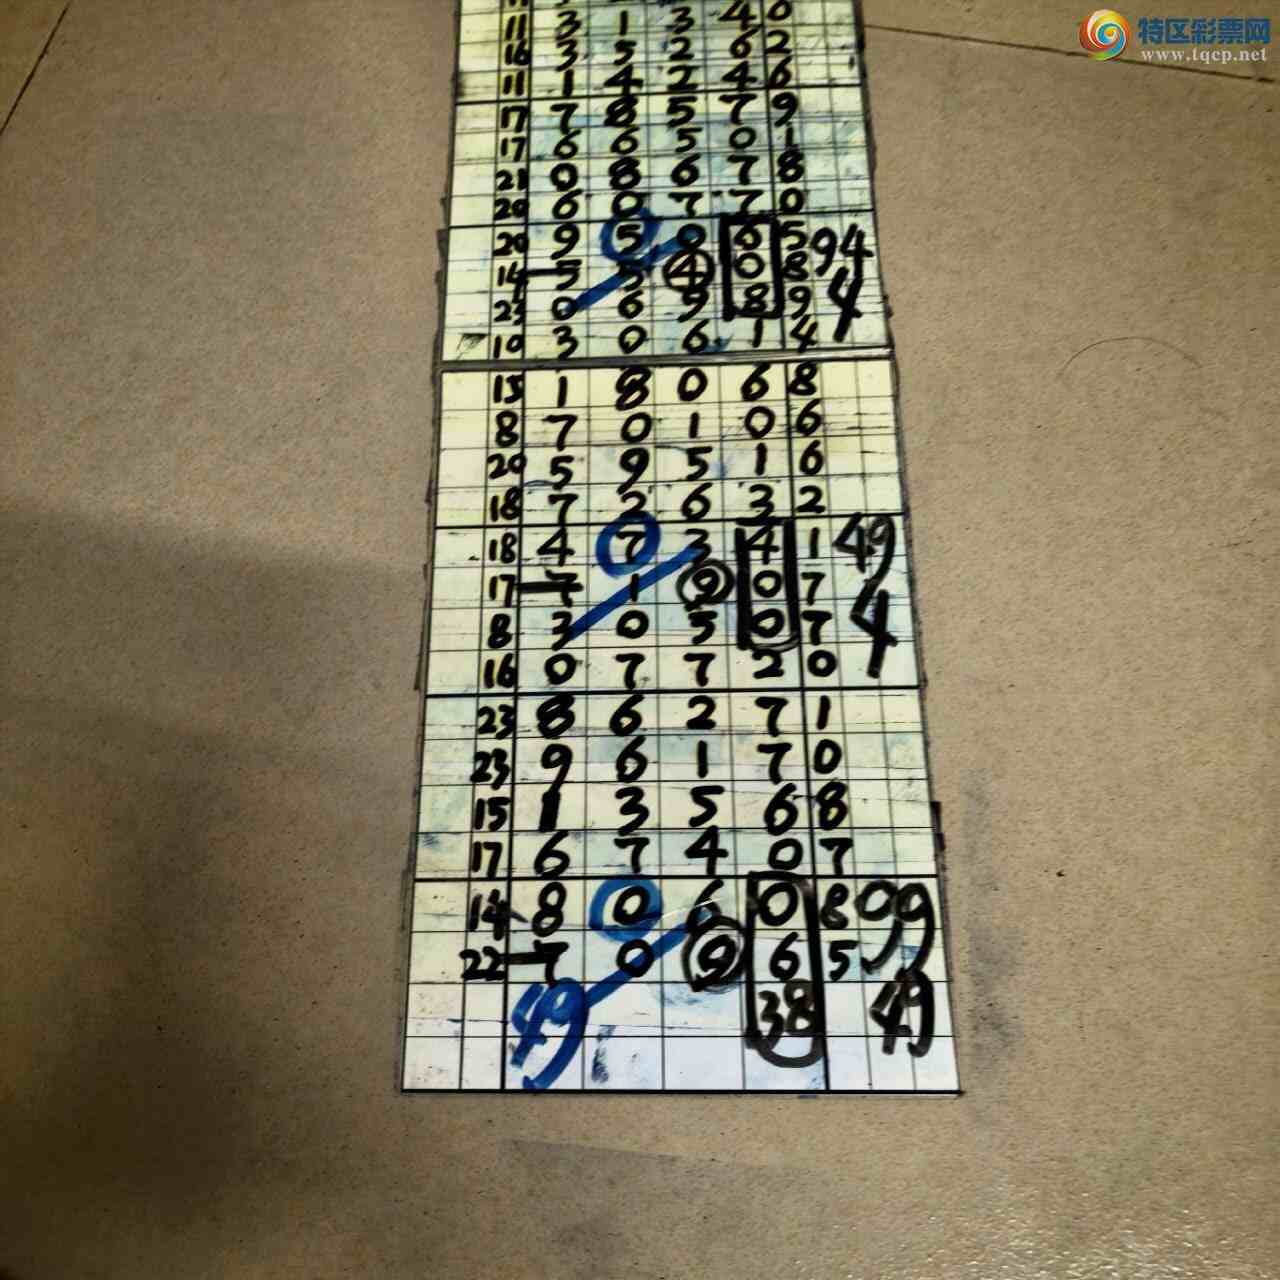 特区彩票网
www.tqcp.net
11 3 1 3 4 0
16 3 5 2 6 2
11 1 4 2 4 6
17 7 8 5 7 9
17 6 6 5 0 1
21 0 8 6 7 8
20 6 0 7 7 0
20 9 5 0 6 5 94
14 5 5 4 0 8
23 0 6 9 8 9 4
10 3 0 6 1 4
15 1 8 0 6 8
8 7 0 1 0 6
20 5 9 5 1 6
18 7 2 6 3 2
18 4 7 3 4 1 49
17 7 1 9 0 7
8 3 0 5 0 7 4
16 0 7 7 2 0
23 8 6 2 7 1
23 9 6 1 7 0
15 1 3 5 6 8
17 6 7 4 0 7
14 8 0 6 0 8 09
22 7 0 9 6 5 9
49 38 49